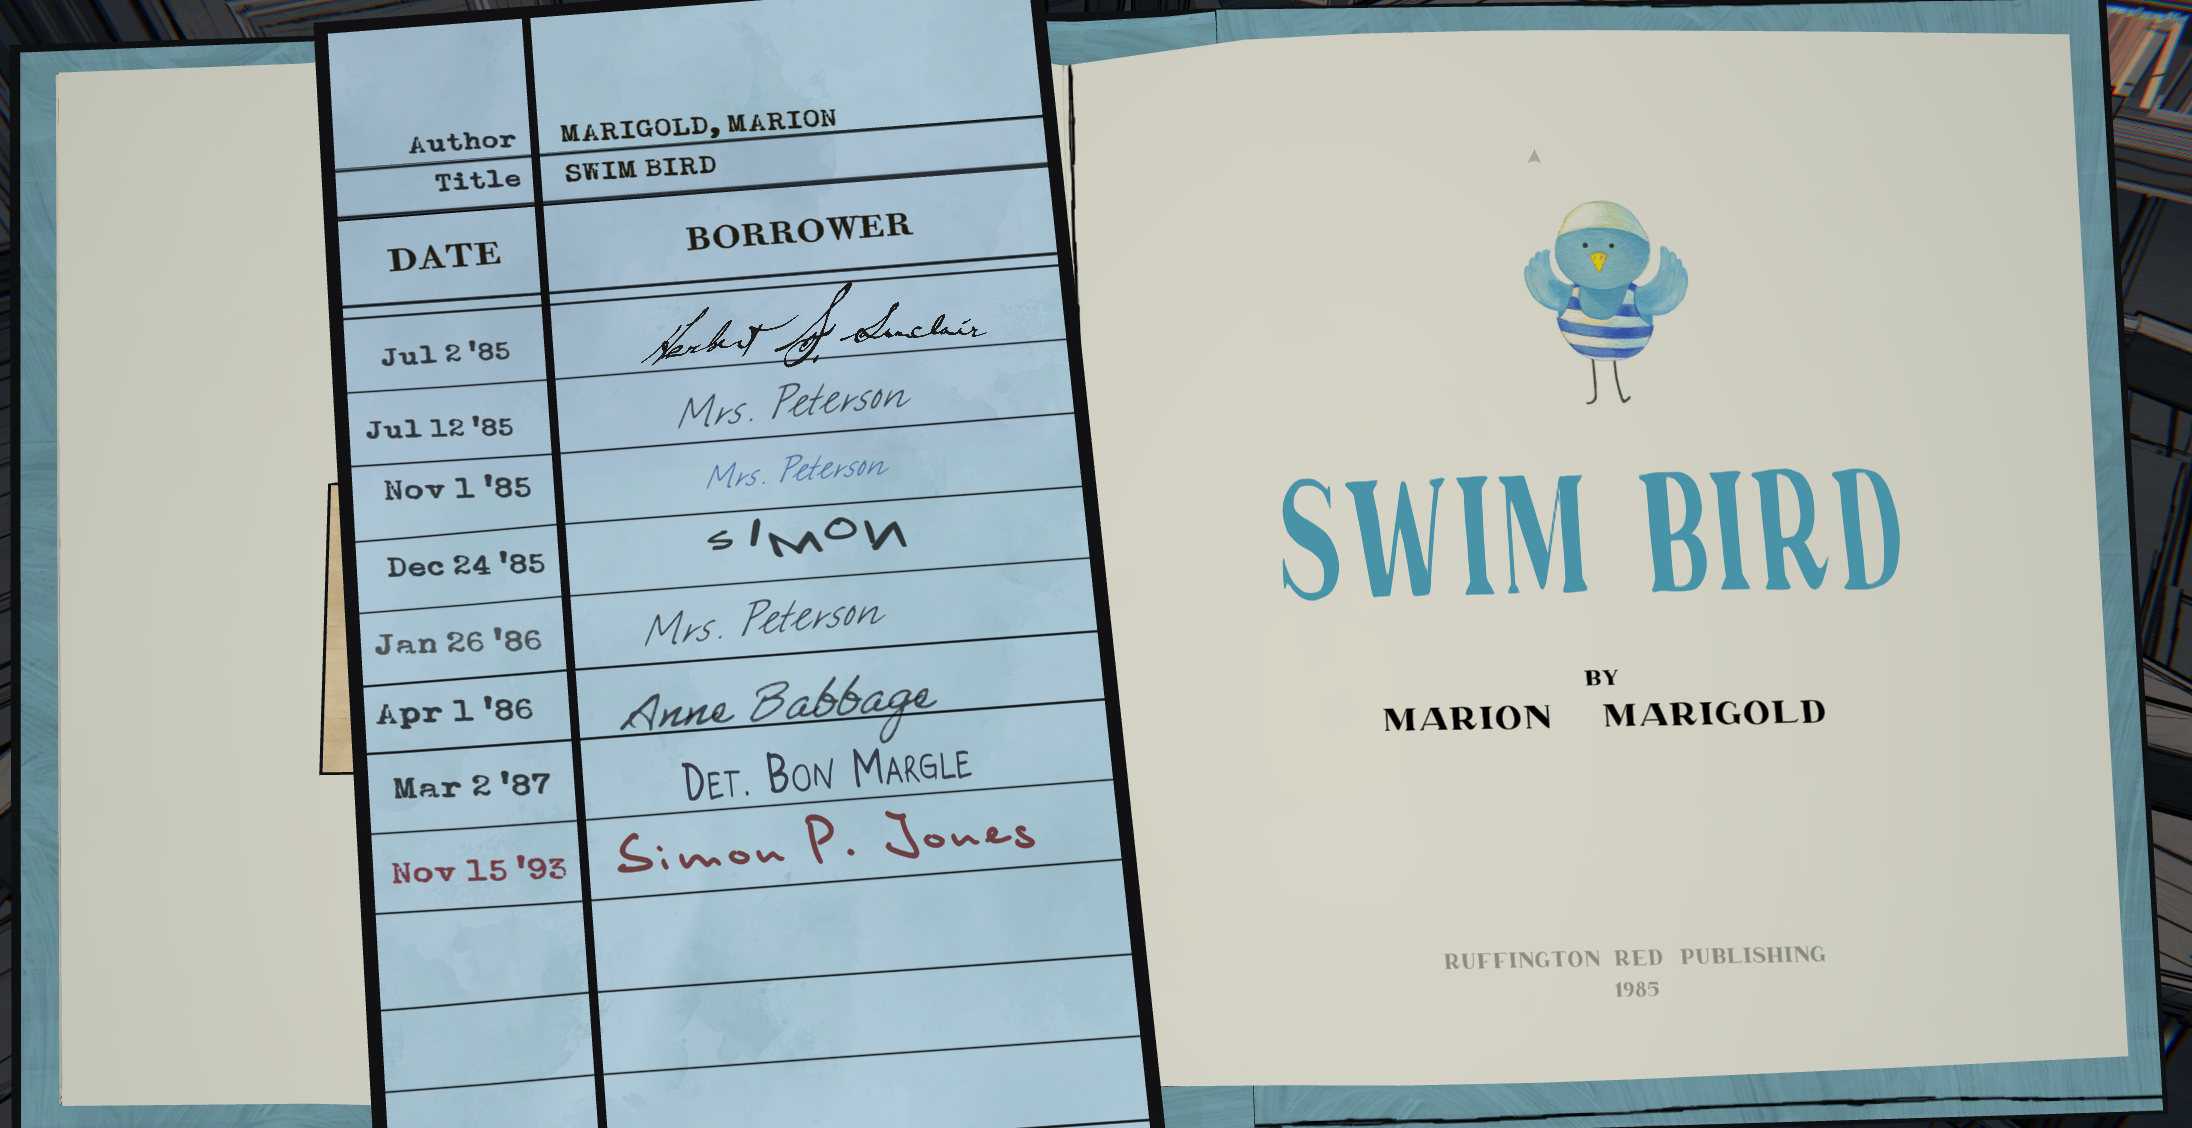 Author MARIGOLD, MARION
Title SWIM BIRD
DATE BORROWER
Jul 2 '85 Herbert S. Sinclair
Jul 12 '85 Mrs. Peterson
Nov 1 '85 Mrs. Peterson
Dec 24 '85 SIMON
Jan 26 '86 Mrs. Peterson
Apr 1 '86 Anne Babbage
Mar 2 '87 DET. BON MARGLE
Nov 15 '93 Simon P. Jones
SWIM BIRD
BY
MARION MARIGOLD
RUFFINGTON RED PUBLISHING
1985